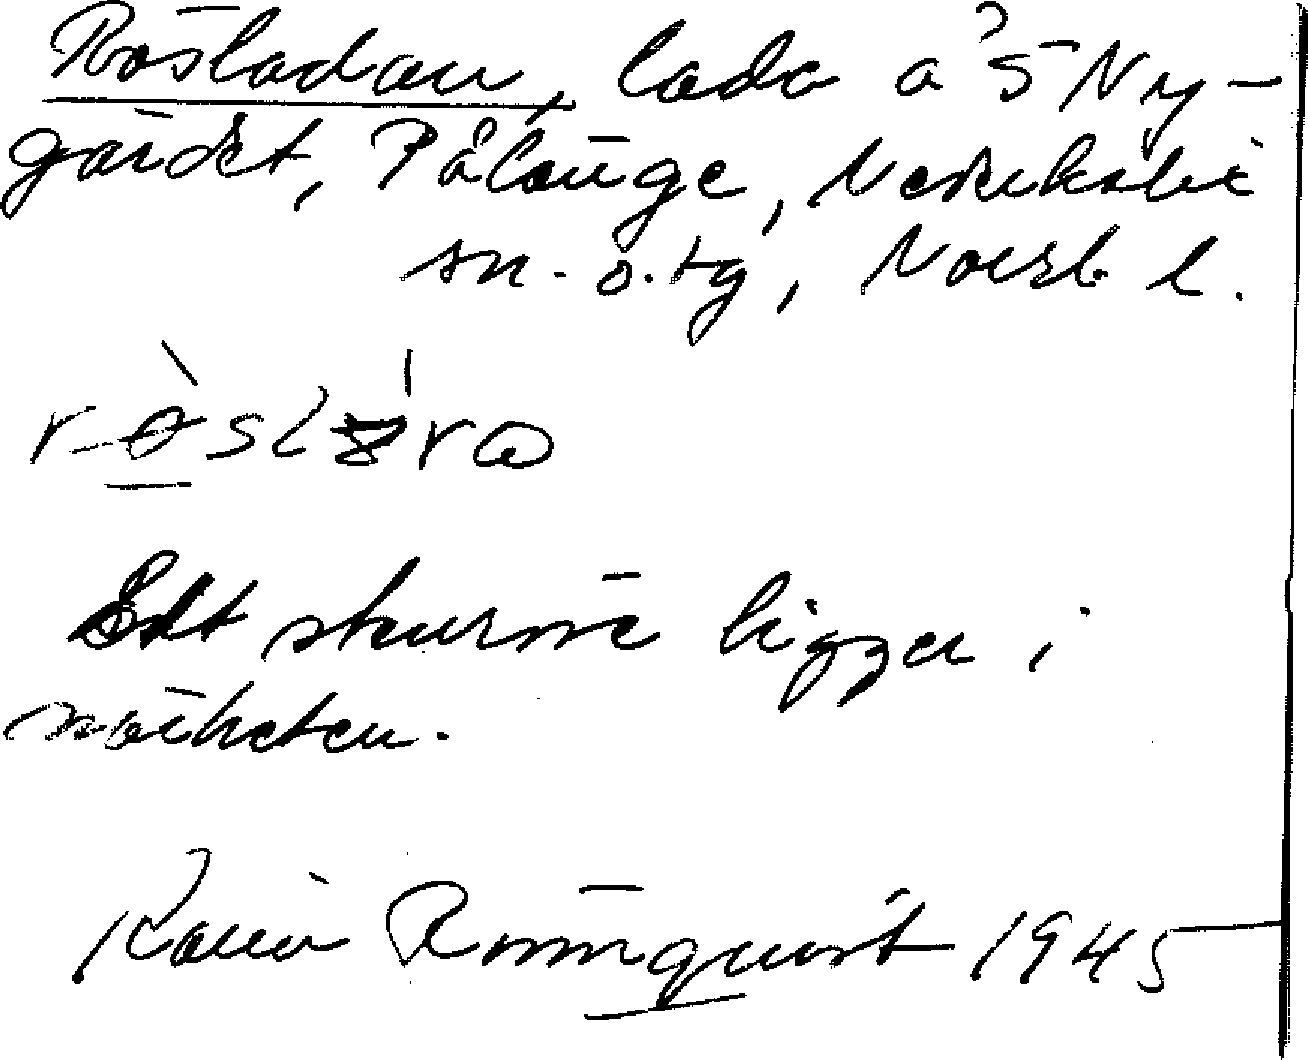 Rösladan, lada å S Ny-
gärdet, Pålänge, Nederkalix
sn. o. tg, Norrb l.
Ett stenröse ligger i
närheten.
Karin Rönnquist 1945